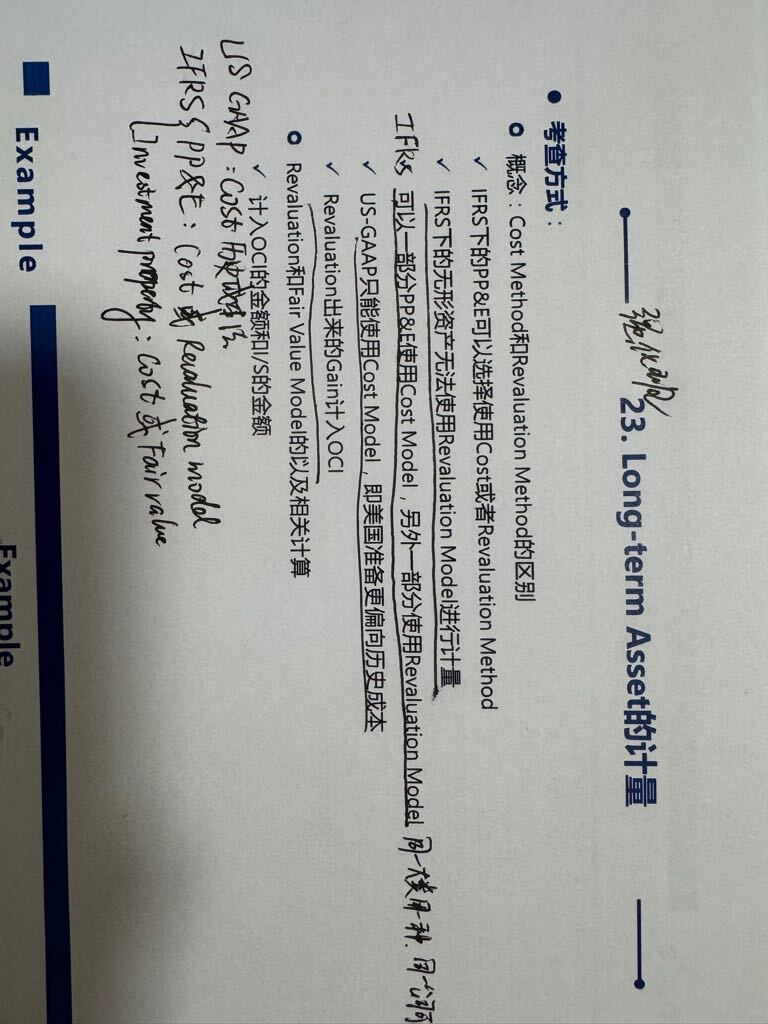 强化班
23. Long-term Asset的计量
• 考查方式：
概念：Cost Method和Revaluation Method的区别
✓ IFRS下的PP&E可以选择使用Cost或者Revaluation Method
✓ IFRS下的无形资产无法使用Revaluation Model进行计量
IFRS 可以一部分PP&E使用Cost Model，另外一部分使用Revaluation Model 同一大类用一种. 同一公司可
✓ US-GAAP只能使用Cost Model，即美国准备更偏向历史成本
✓ Revaluation出来的Gain计入OCI
Revaluation和Fair Value Model的以及相关计算
✓ 计入OCI的金额和I/S的金额
US GAAP: Cost 历史成本
IFRS { PP&E: Cost 或 Revaluation model
Investment property: Cost 或 Fair value
Example
Example